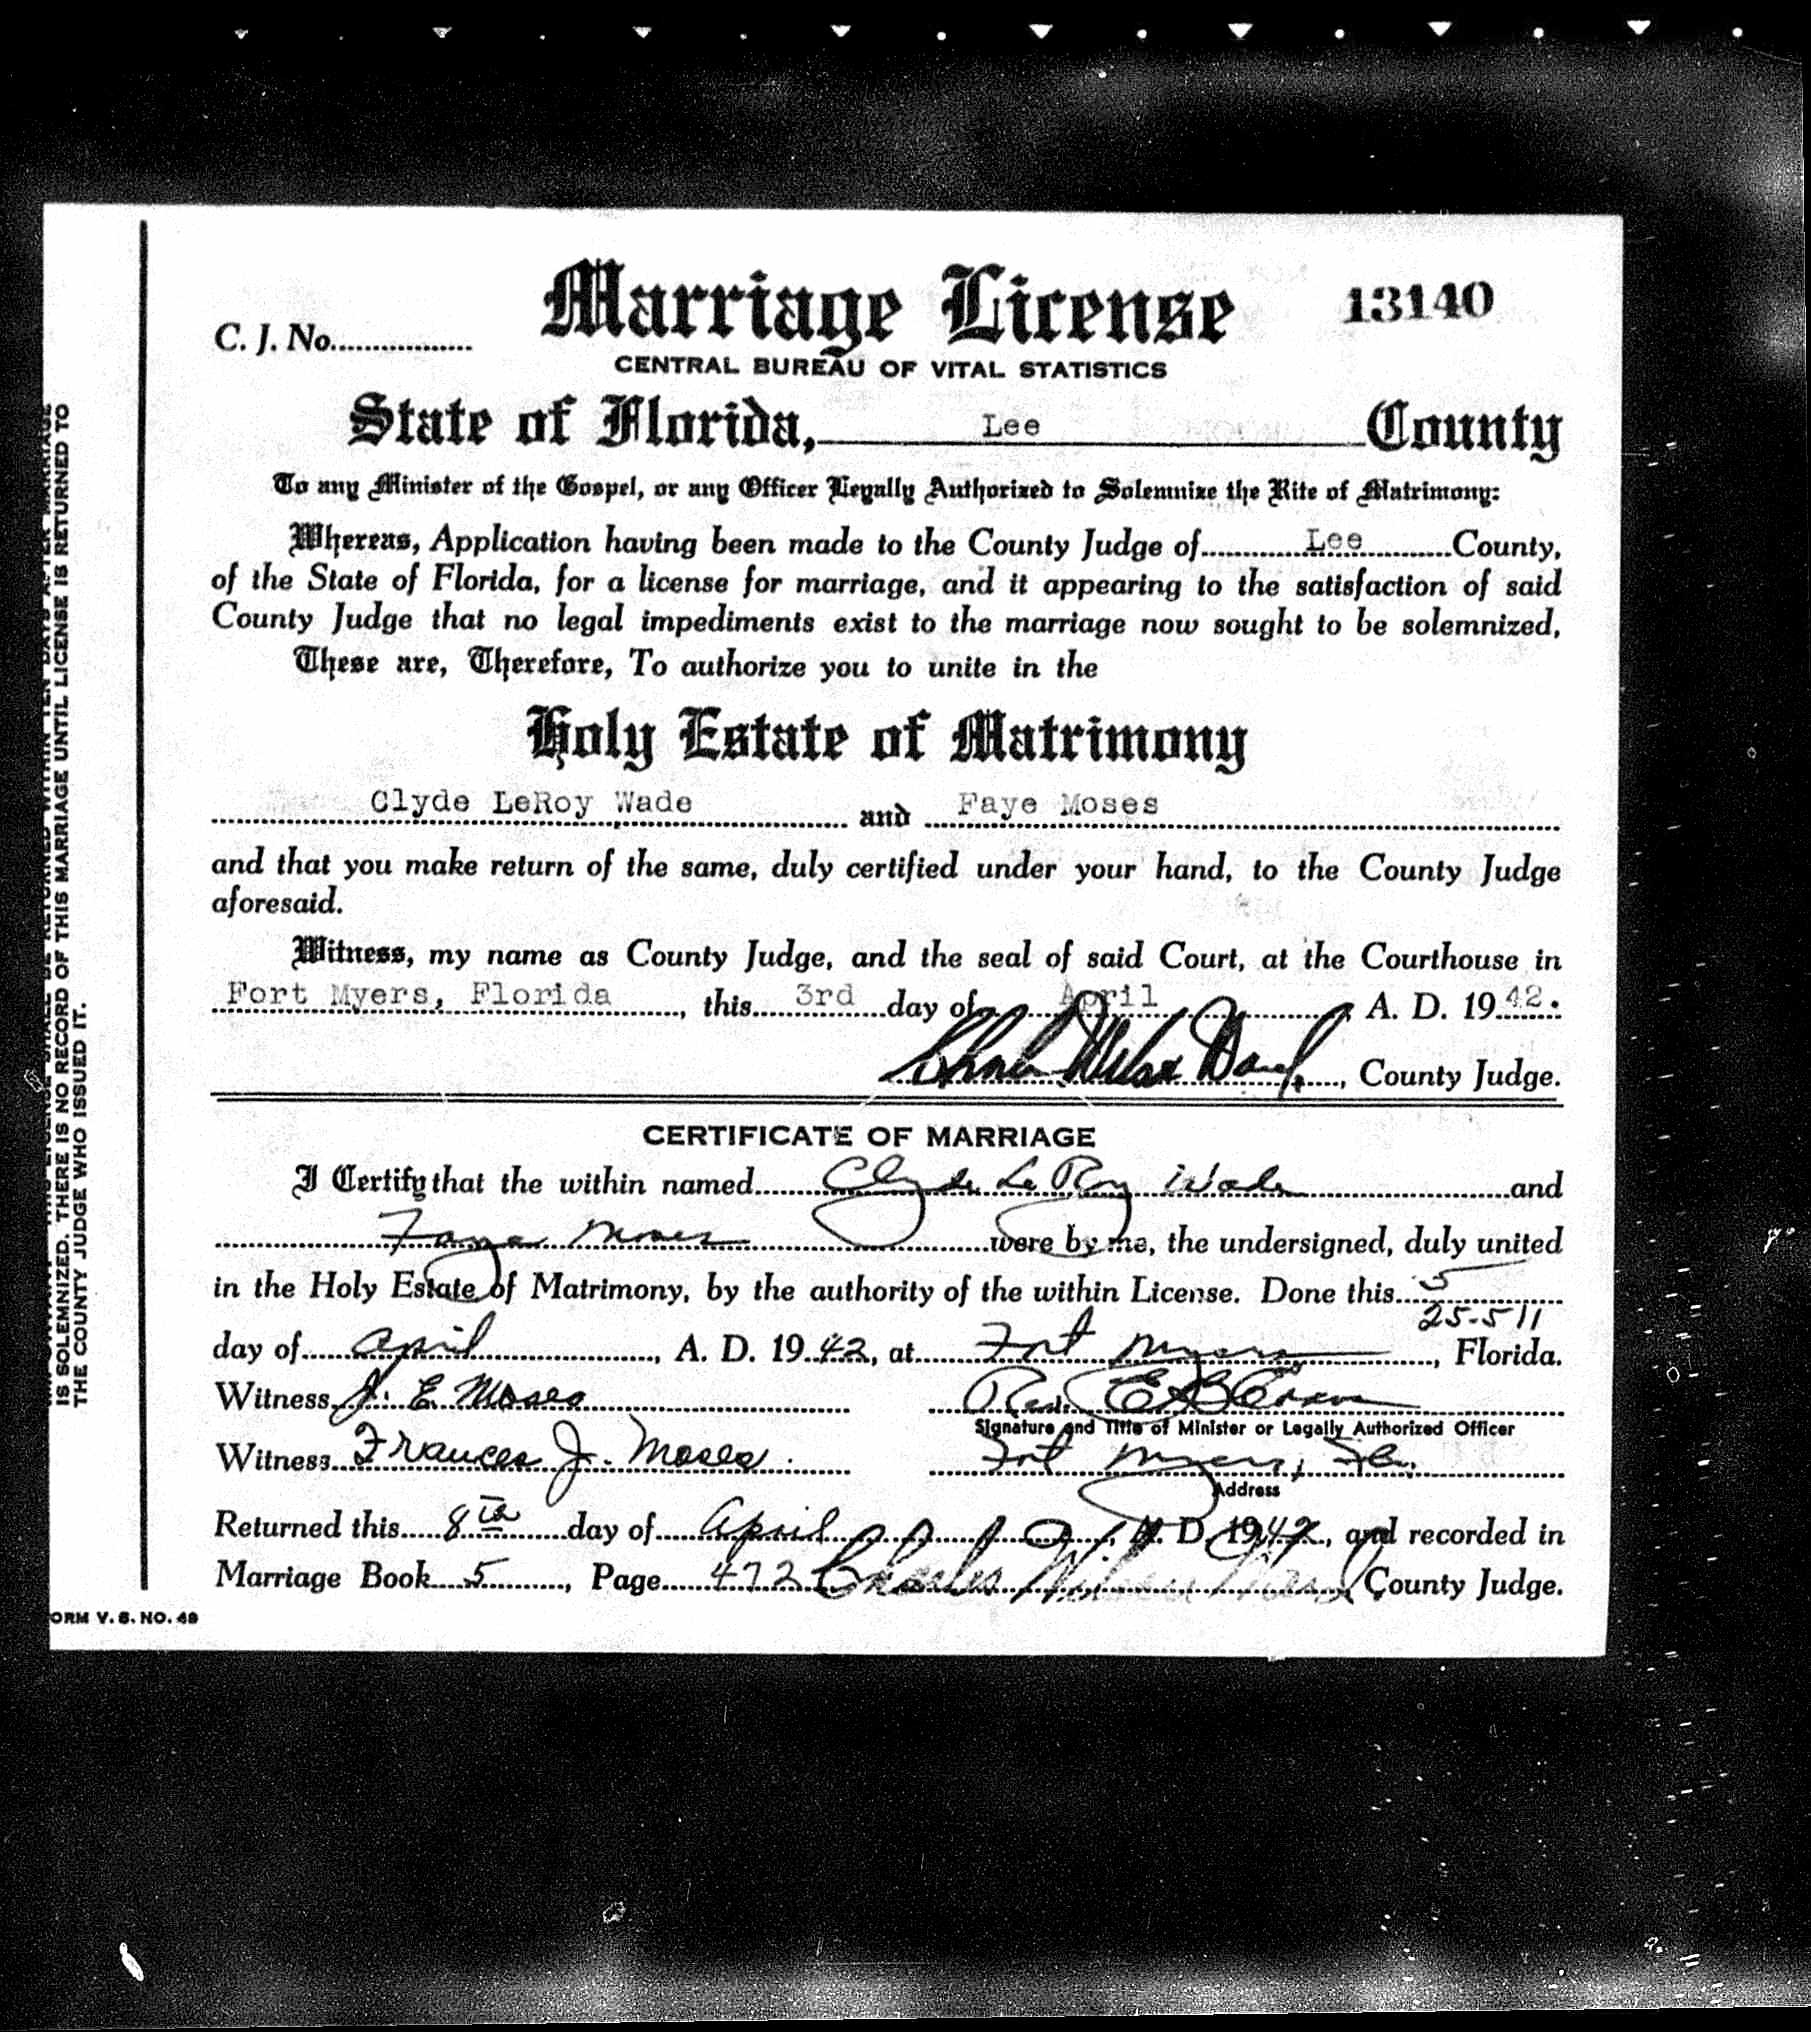 Marriage License
13140
C. J. No.................
CENTRAL BUREAU OF VITAL STATISTICS
State of Florida, Lee County
To any Minister of the Gospel, or any Officer Legally Authorized to Solemnize the Rite of Matrimony:
Whereas, Application having been made to the County Judge of Lee County,
of the State of Florida, for a license for marriage, and it appearing to the satisfaction of said
County Judge that no legal impediments exist to the marriage now sought to be solemnized,
These are, Therefore, To authorize you to unite in the
Holy Estate of Matrimony
Clyde LeRoy Wade and Faye Moses
and that you make return of the same, duly certified under your hand, to the County Judge
aforesaid.
Witness, my name as County Judge, and the seal of said Court, at the Courthouse in
Fort Myers, Florida, this 3rd day of April A. D. 1942.
County Judge.
CERTIFICATE OF MARRIAGE
I Certify that the within named Clyde LeRoy Wade and
Faye Moses were by me, the undersigned, duly united
in the Holy Estate of Matrimony, by the authority of the within License. Done this 5
25-511
day of April, A. D. 1942, at Fort Myers, Florida.
Witness J. E. Moses Rev. E
Signature and Title of Minister or Legally Authorized Officer
Witness Frances J. Moses. Fort Myers, Fla.
Address
Returned this 8th day of April, A. D. 1942, and recorded in
Marriage Book 5, Page 472 Charles Wilson County Judge.
ORM V. S. NO. 49
IS SOLEMNIZED. THERE IS NO RECORD OF THIS MARRIAGE UNTIL LICENSE IS RETURNED TO
THE COUNTY JUDGE WHO ISSUED IT.